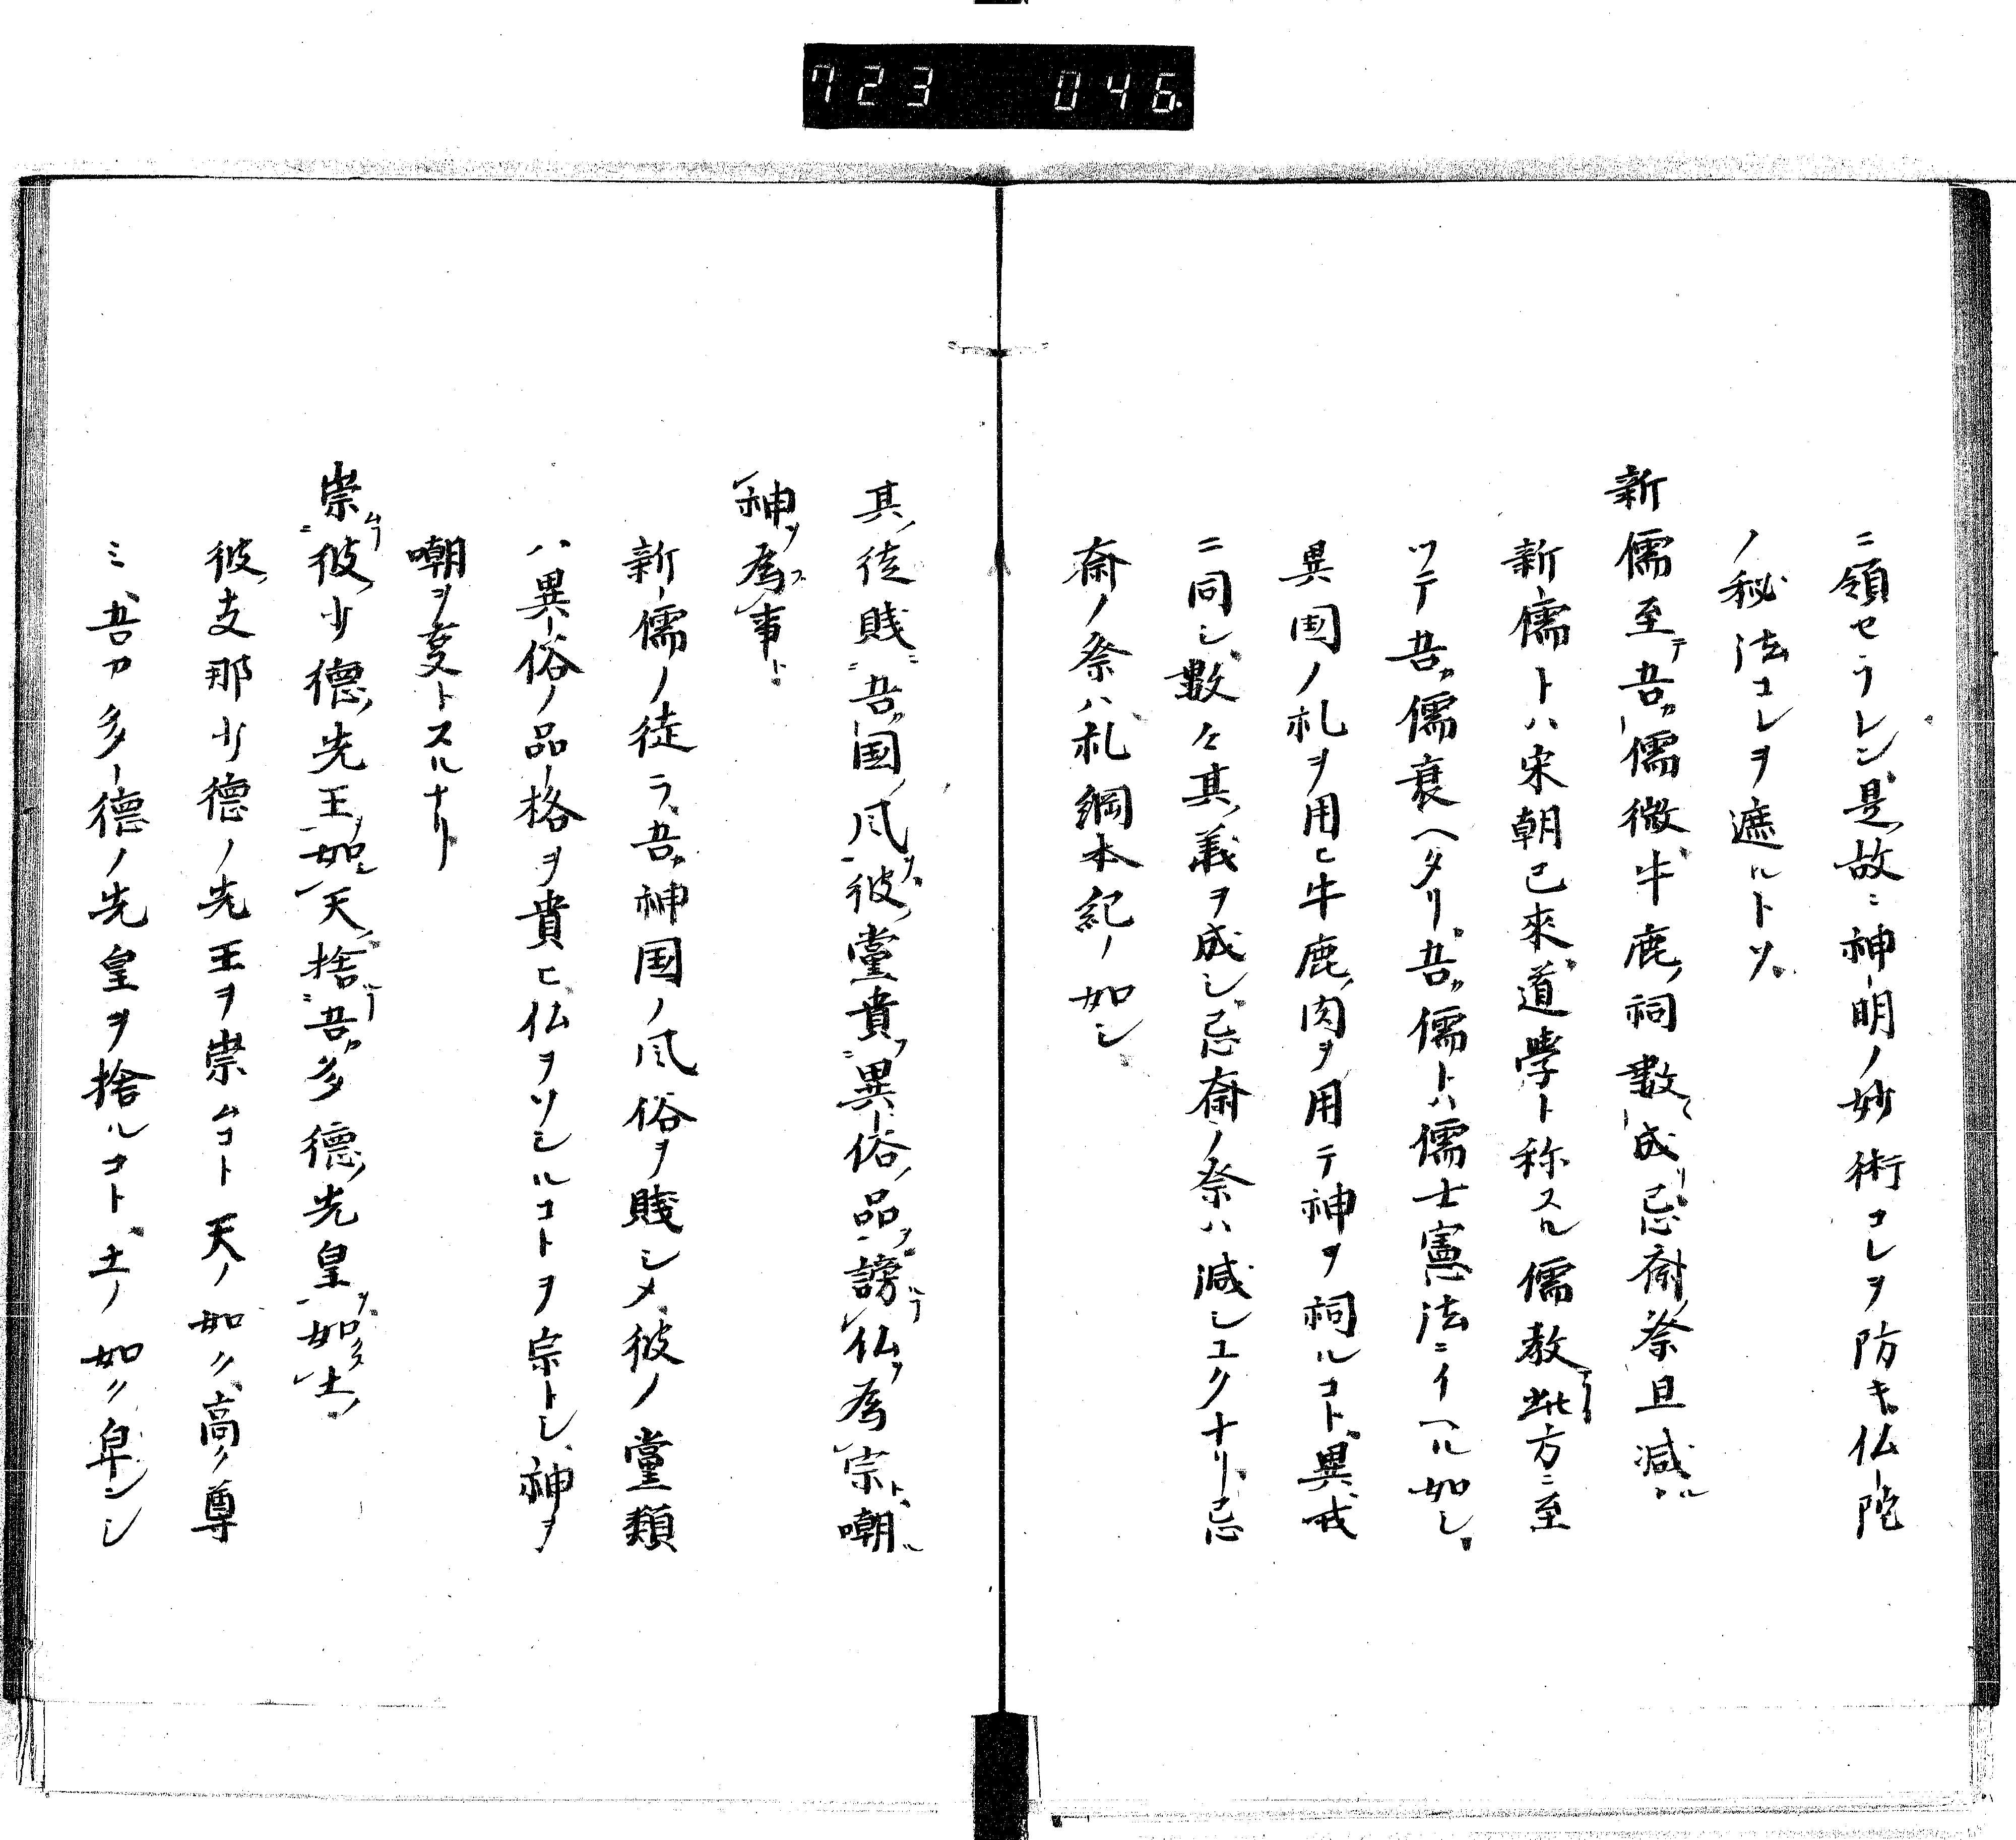 723 046.
ニ領セラレン是故ニ神明ノ妙術コレヲ防キ仏陀
ノ秘法コレヲ遮ルトソ
新儒至テ吾カ儒微牛鹿ノ祠数々成リ忌斎ノ祭且減ル
新儒トハ宋朝已來道學ト称スル儒教此方ニ至
ツテ吾カ儒衰ヘタリ吾カ儒トハ儒士憲法ニイヘル如シ
異国ノ札ヲ用ヒ牛鹿ノ肉ヲ用テ神ヲ祠ルコト異戒
ニ同シ数々其ノ義ヲ成シ忌斎ノ祭ハ減シユクナリ忌
斎ノ祭ハ札綱本紀ノ如シ
其ノ徒賤ニ吾カ国ノ風ヲ彼ノ黨貴ニ異俗ノ品ヲ謗ラ仏ヲ為宗ト嘲ル
神ヲ為ス事ト
新儒ノ徒ラ吾カ神国ノ風俗ヲ賤シメ彼ノ黨類
ハ異俗ノ品格ヲ貴ヒ仏ヲソシルコトヲ宗トシ神ヲ
嘲ヲ変トスルナリ
崇ムニ彼ノ少德ノ先王ヲ如シ天ノ捨ニ吾カ多德ノ先皇ヲ如ク土ノ
彼ノ支那少德ノ先王ヲ崇ムコト天ノ如ク高ク尊
ミ吾カ多德ノ先皇ヲ捨ルコト土ノ如ク卑シ